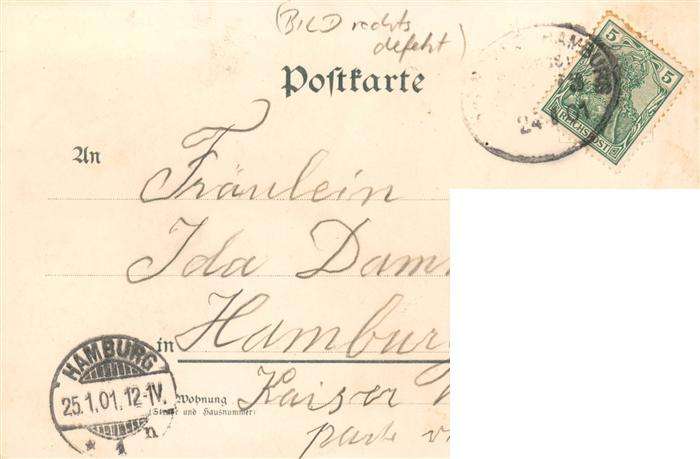 (BILD rechts
defekt)
Postkarte
HAMBURG
24.
01
5
5
REICHSPOST
An
Fräulein
Ida Damm
in Hamburg
Wohnung
(Straße und Hausnummer)
Kaiser
HAMBURG
25.1.01.12-1V.
* 1 n